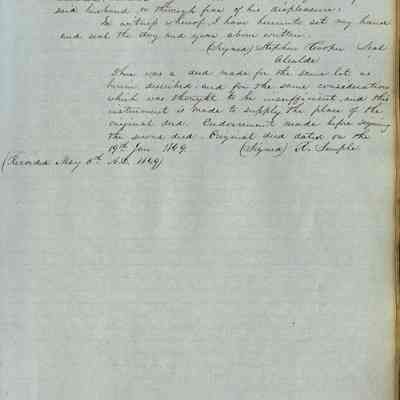 said husband or through fear of his displeasure.
In witness whereof I have hereunto set my hand
and seal the day and year above written.
(Signed) Stephen Cooper Seal
Alcalde
There was a deed made for the same lot as
herein described and for the same consideration
which was thought to be insufficient and this
instrument is made to supply the place of the
original deed. Endorsement made before signing
the second deed. Original deed dated on the
19th Jan 1849 (Signed) R. Semple
(Recorded May 6th A.D. 1849)